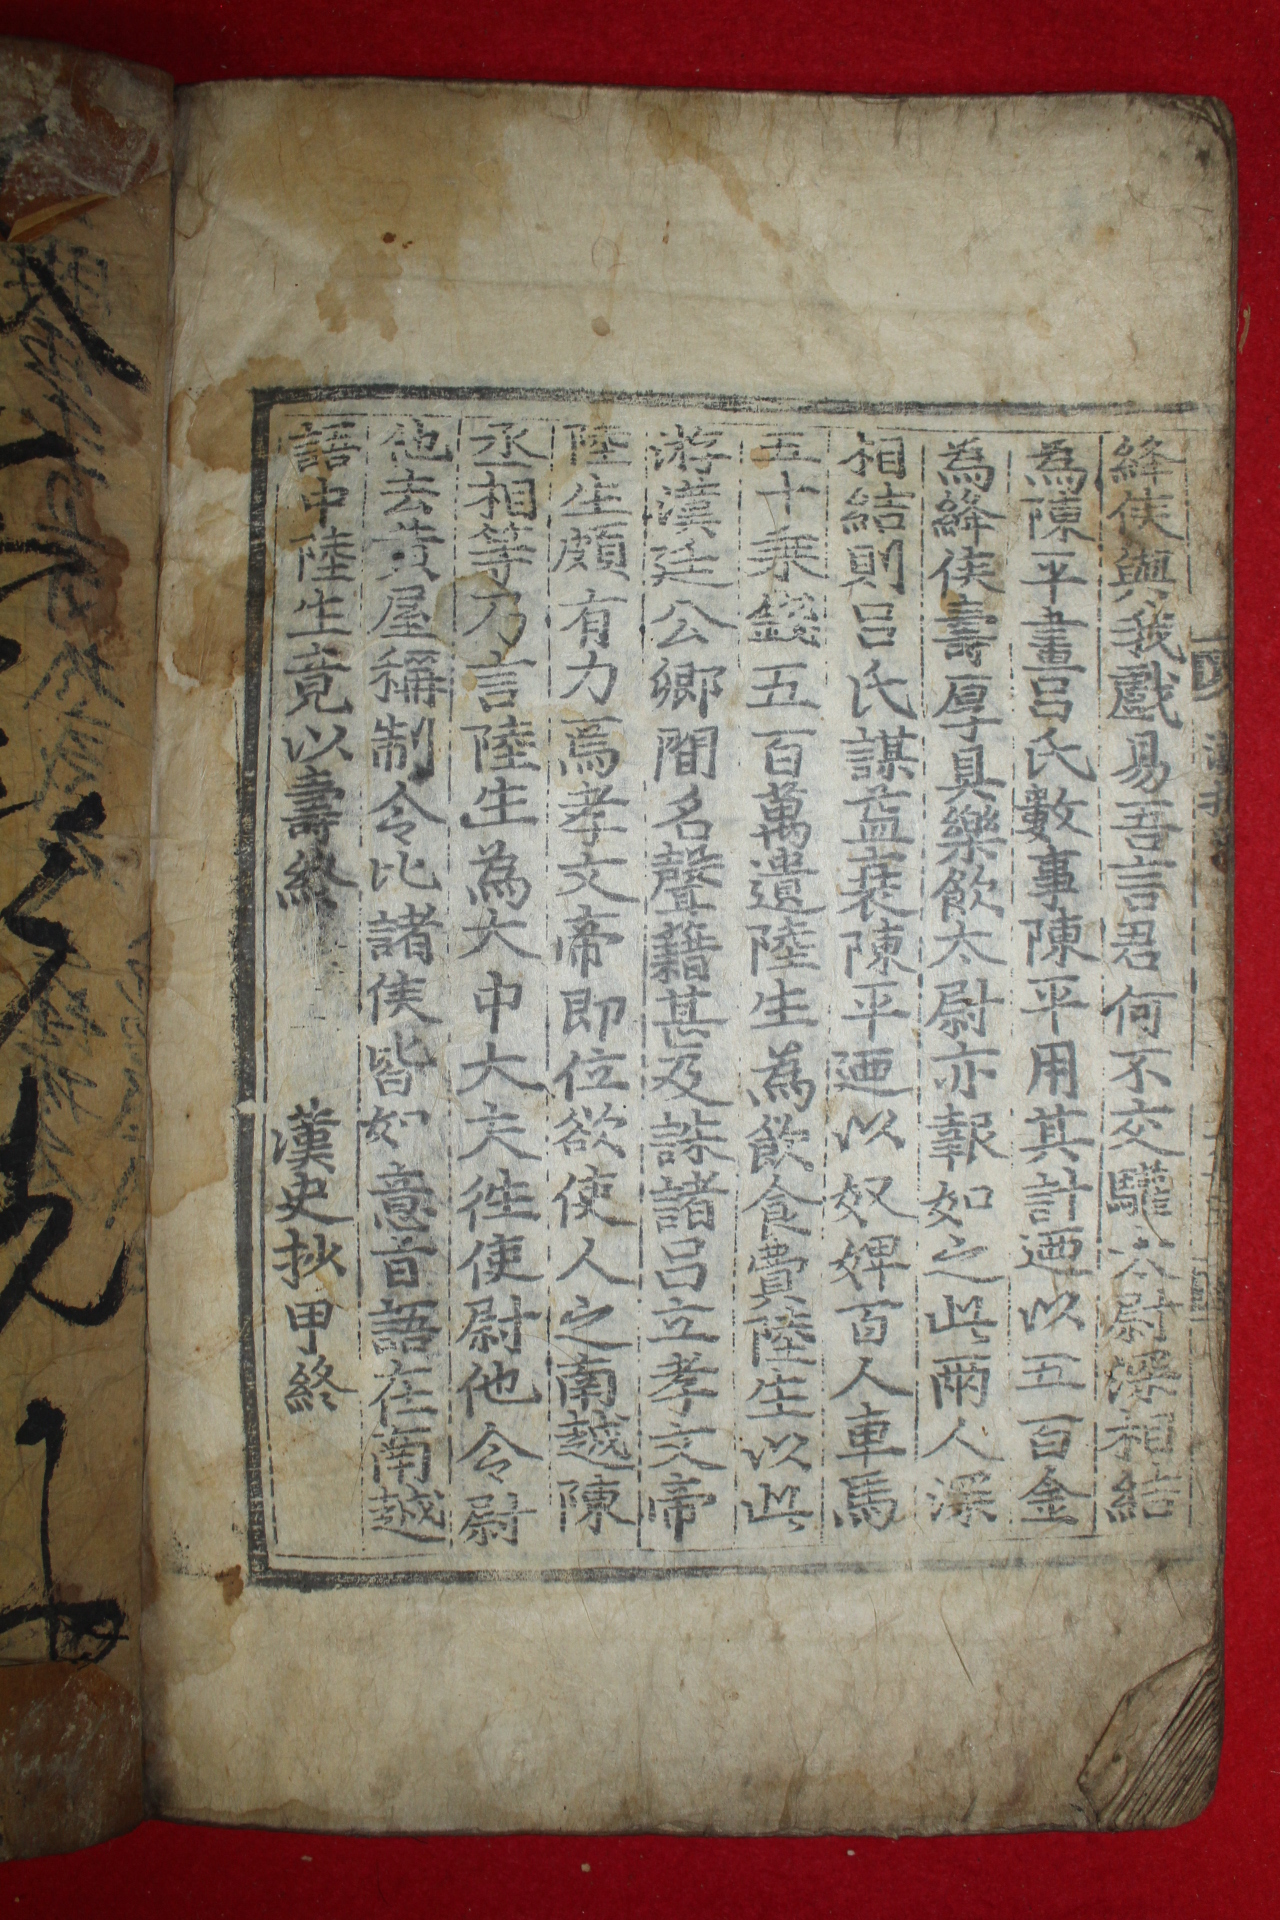 絳侯與我戲易吾言君何不交驩太尉深相結
為陳平畫呂氏數事陳平用其計廼以五百金
為絳侯壽厚具樂飲太尉亦報如之此兩人深
相結則呂氏謀益衰陳平廼以奴婢百人車馬
五十乘錢五百萬遺陸生為飲食費陸生以此
游漢廷公卿間名聲籍甚及誅諸呂立孝文帝
陸生頗有力焉孝文帝即位欲使人之南越陳
丞相等乃言陸生為大中大夫往使尉他令尉
他去黃屋稱制令比諸侯皆如意旨語在南越
語中陸生竟以壽終
漢史抄甲終